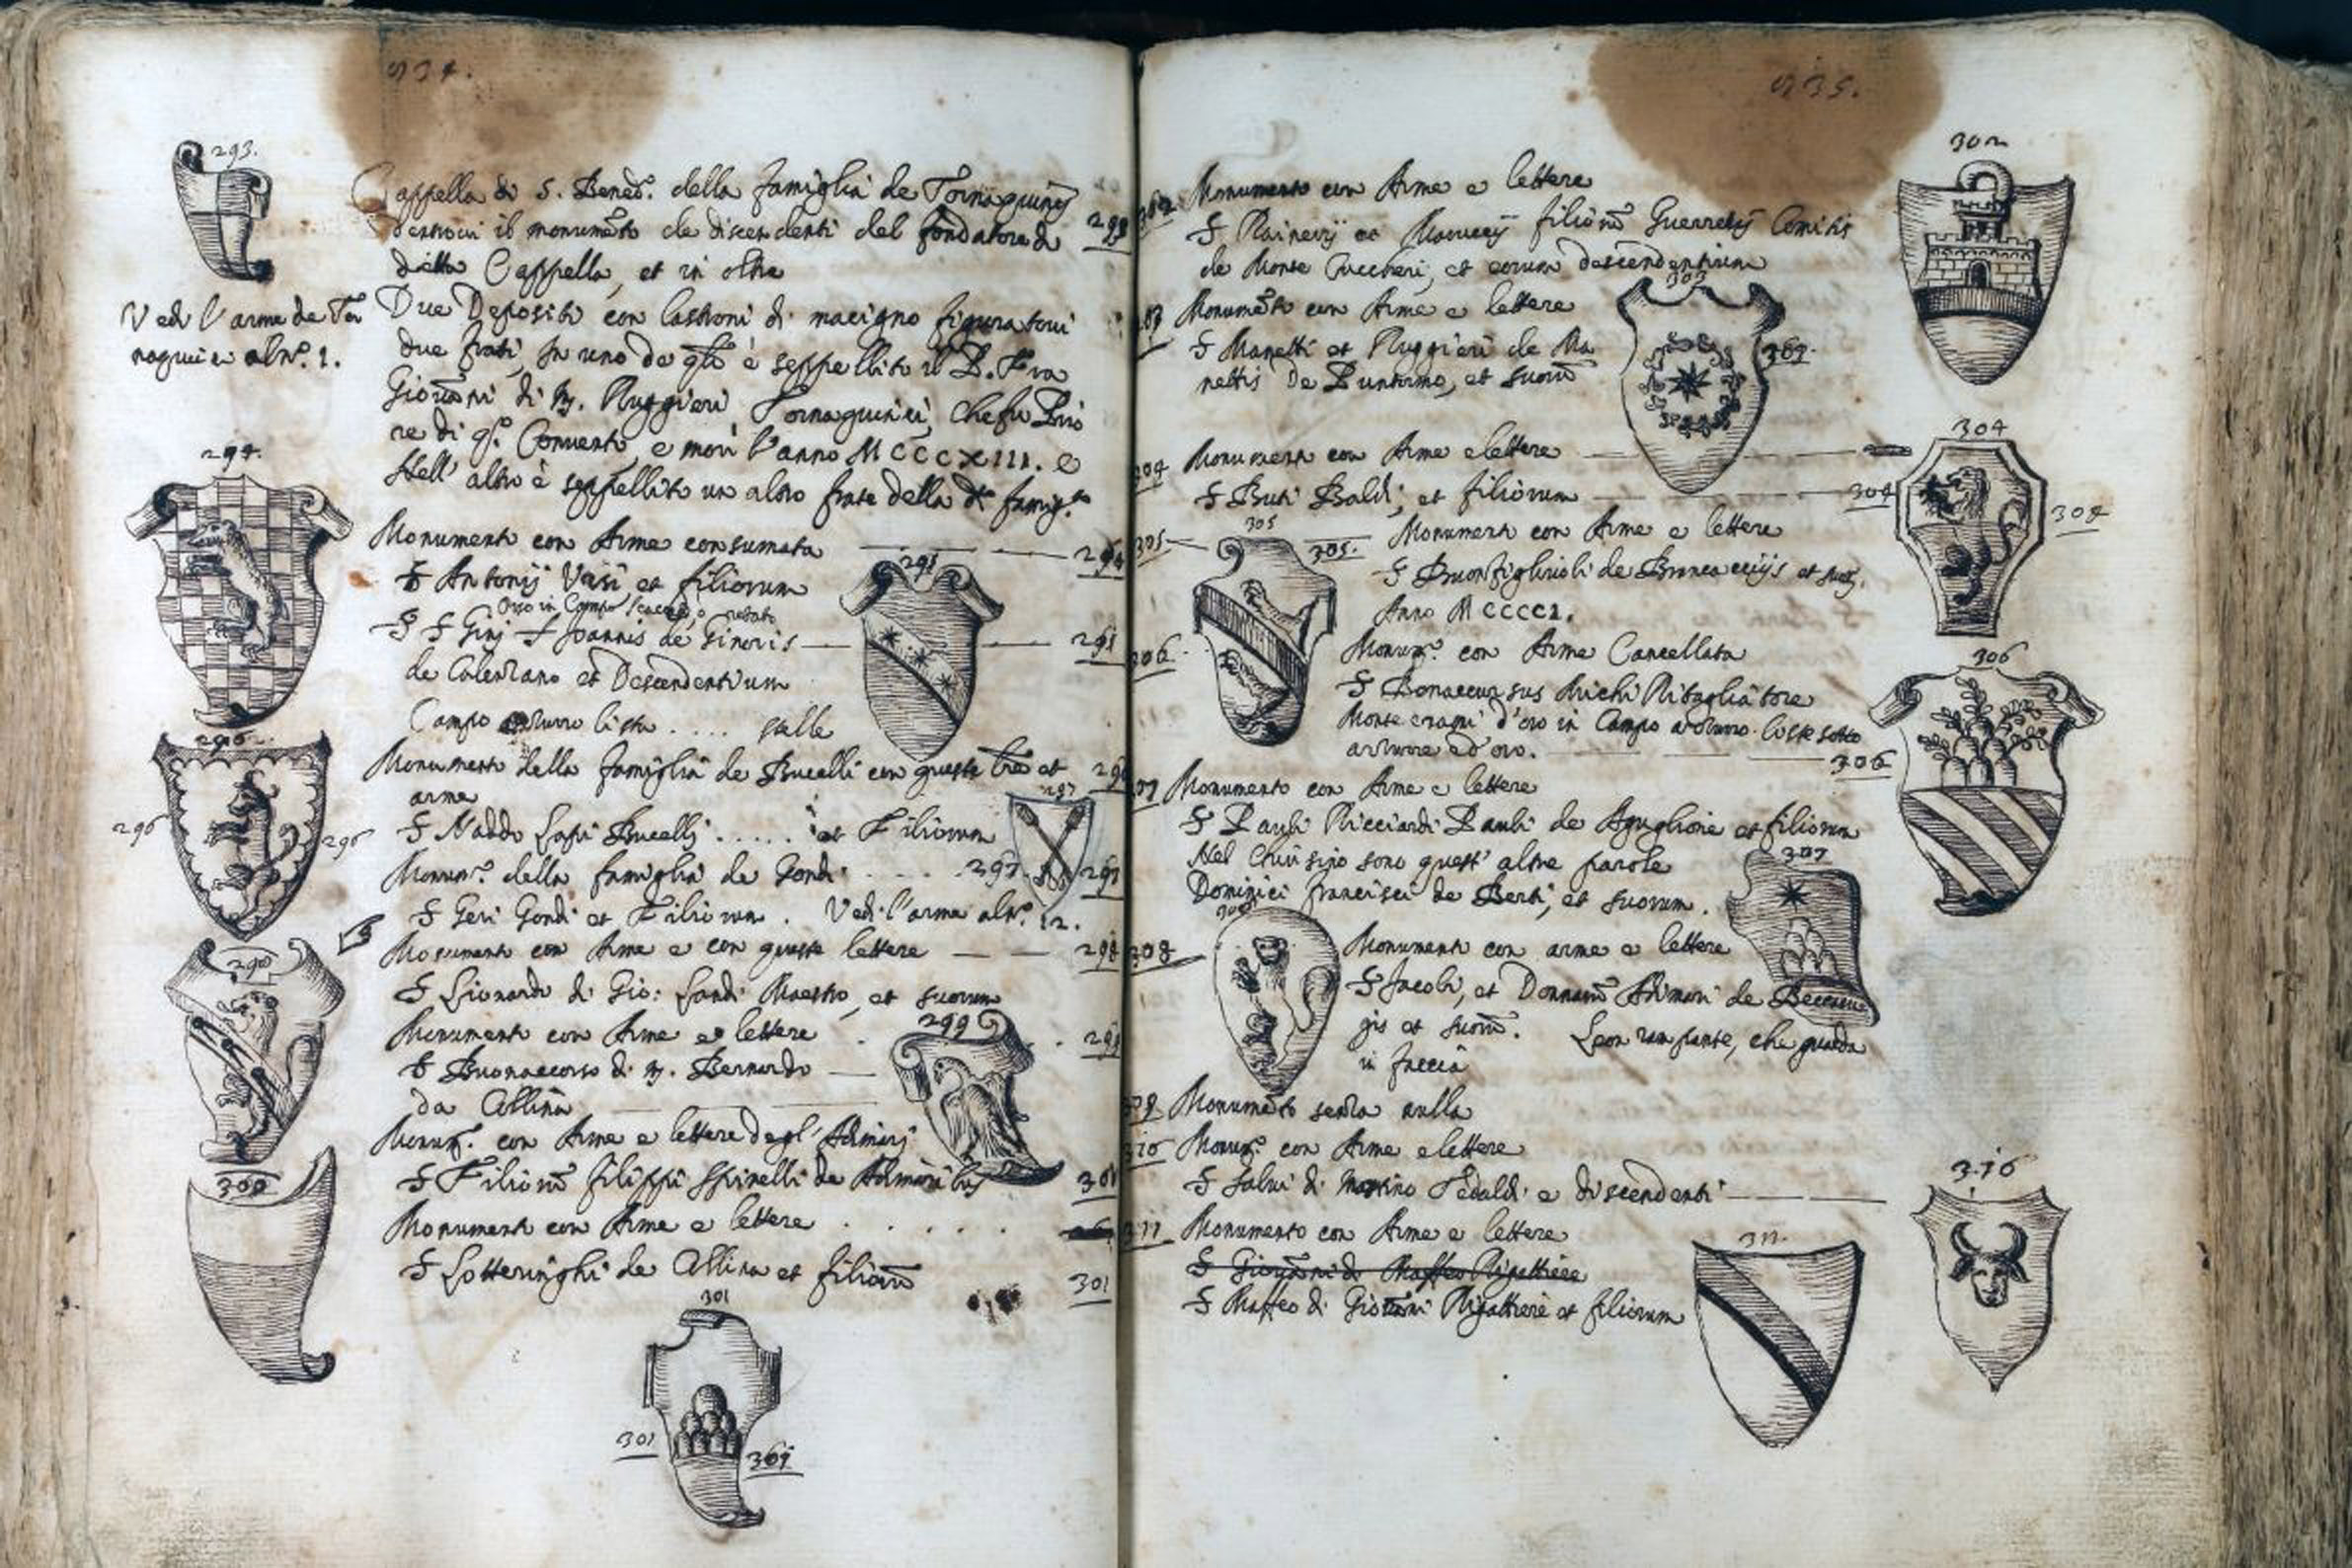 934.
293.
Cappella di S. Bened.º della famiglia de Tornaquinci
dentrovi il monumẽto de discendenti del fondatore di 293
detta Cappella, et in oltre
Vedi l'arme de Tor
naquinci al nº. 1.
Due Depositi con lastroni di macigno figuratovi
due frati, In uno de qti è seppellito il P. Fra
Giovãni di M. Ruggieri Tornaquinci, che fu Prio
re di qº. Convento, e morì l'anno MCCCXIII. e
Nell' altro è seppellito un altro frate della dª famigª.
294.
Monumento con Arme consumata 294
S Antonij Vasi et filiorum
Orso in Campo
295
S S Ginj S Joannis de Ginoris 295
de Calenzano et Descendentium
Campo azzurro lista .... stelle
296
Monumento della famiglia de Bucelli con queste 296
arme
297
296 296
S Naddo Lapi Bucelli ..... et Filiorum
Monumº. della famiglia de Gondi .... 297. 297
S Geri Gondi et Filiorum. Vedi l'arme al nº. 12.
298
Monumento con Arme e con queste lettere 298
S Lionardo di Gio: Landi Maestro, et suorum
299
Monumento con Arme e lettere 299
S Buonaccorso di M. Bernardo
da
Monumº. con Arme e lettere degl' Adimarj
300
S Filiorũ filippi Spinelli de Adimaribus 300
Monumento con Arme e lettere . . . . . .
S Lotteringhi de et filiorũ 301
301
301 301
935.
302
302 Monumento con Arme e lettere
S Rainerij et filiorũ Comitis
de Monte et eorum descendentium
303
303 Monumẽto con Arme e lettere
S Manetti et Ruggieri de Ma 303.
nettis De et suorũ
304
304 Monumento con Arme e lettere
S Buti Baldi, et filiorum 304
304
305
305 305. Monumento con Arme e lettere
S Buonfigliuoli de Brancacciis et suor.
Anno MCCCCI.
306
306. Monumº. con Arme Cancellata
S Bonaccursus Michi Ritagliatore
Monte e rami d'oro in Campo azzurro. liste sotto
azzurre ed oro. 306
307 Monumento con Arme e lettere
S Pauli Ricciardi Pauli de Aguglione et filiorum
Nel chiusino sono quest' altre parole
307
Dominici francisci de Berti, et suorum.
308
308 Monumento con arme e lettere
S Jacobi, et Adimari de
gis et suorũ. Leon rampante, che guarda
in faccia
309 Monumẽto senza nulla
310 Monumº. con Arme e lettere
310
S Salvi di Martino Tedaldi e discendenti
311 Monumento con Arme e lettere
311.
S Giovãni di Maffeo Rigattiere
S Maffeo di Giovãni Rigattiere et filiorum